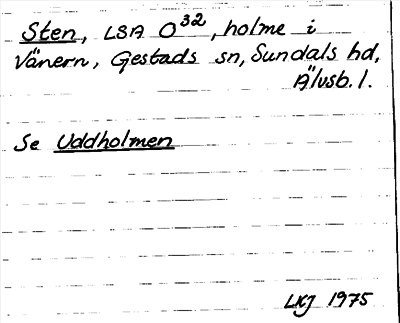 Sten, LSA O³², holme i
Vänern, Gestads sn, Sundals hd,
Älvsb. l.
Se Uddholmen
LKJ 1975